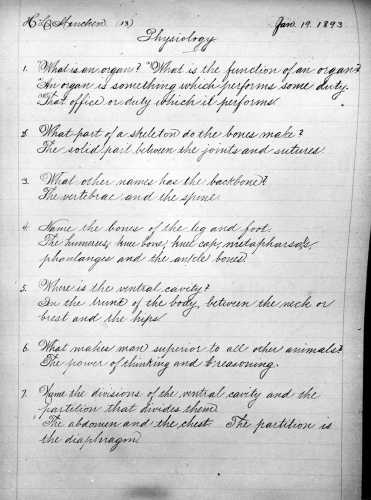 H. C. Hanchen 13) Jan. 19. 1893.
Physiology
1. "What is an organ?" "What is the function of an organ?
"An organ is something which performs some duty.
That office or duty which it performs.
2. What part of a skeleton do the bones make?
The solid part between the joints and sutures.
3. What other names has the backbone?
The vertebrae and the spine
4. Name the bones of the leg and foot.
The humerus, knee bone, knee cap, metapharsals,
phalanges and the ankle bones
5. Where is the ventral cavity?
In the trunk of the body, between the neck or
brest and the hips
6. What makes man superior to all other animals?
The power of thinking and reasoning.
7. Name the divisions of the ventral cavity and the
partition that divides them
The abdomen and the chest The partition is
the diaphragon